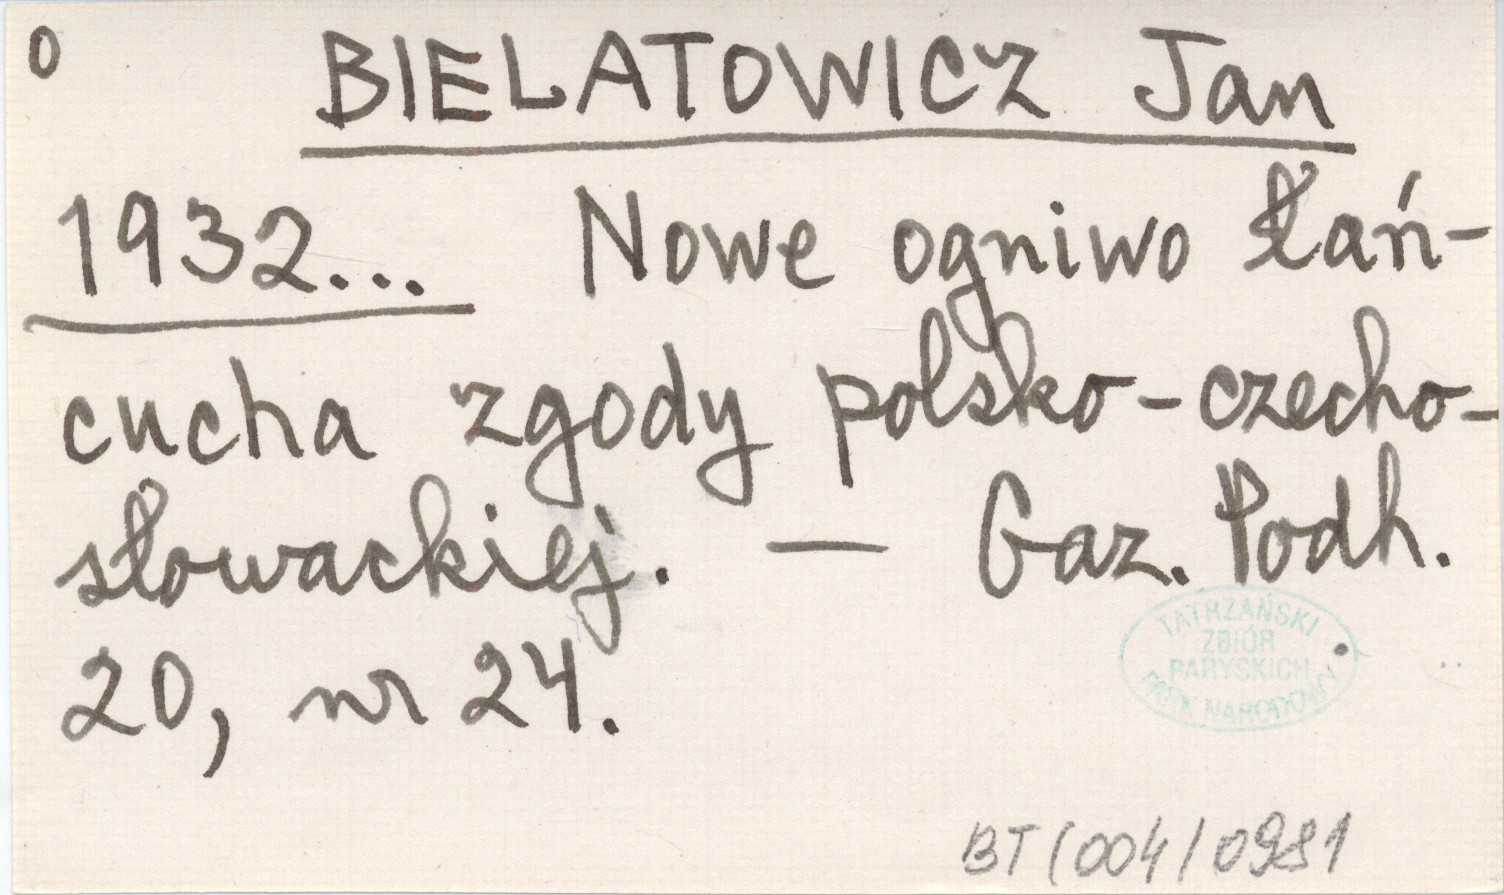 0
BIELATOWICZ Jan
1932... Nowe ogniwo łań-
cucha zgody polsko-czecho-
słowackiej. — Gaz. Podh.
20, nr 24.
TATRZAŃSKI
ZBIÓR
PARYSKICH
PARK NARODOWY
BT/004/0981